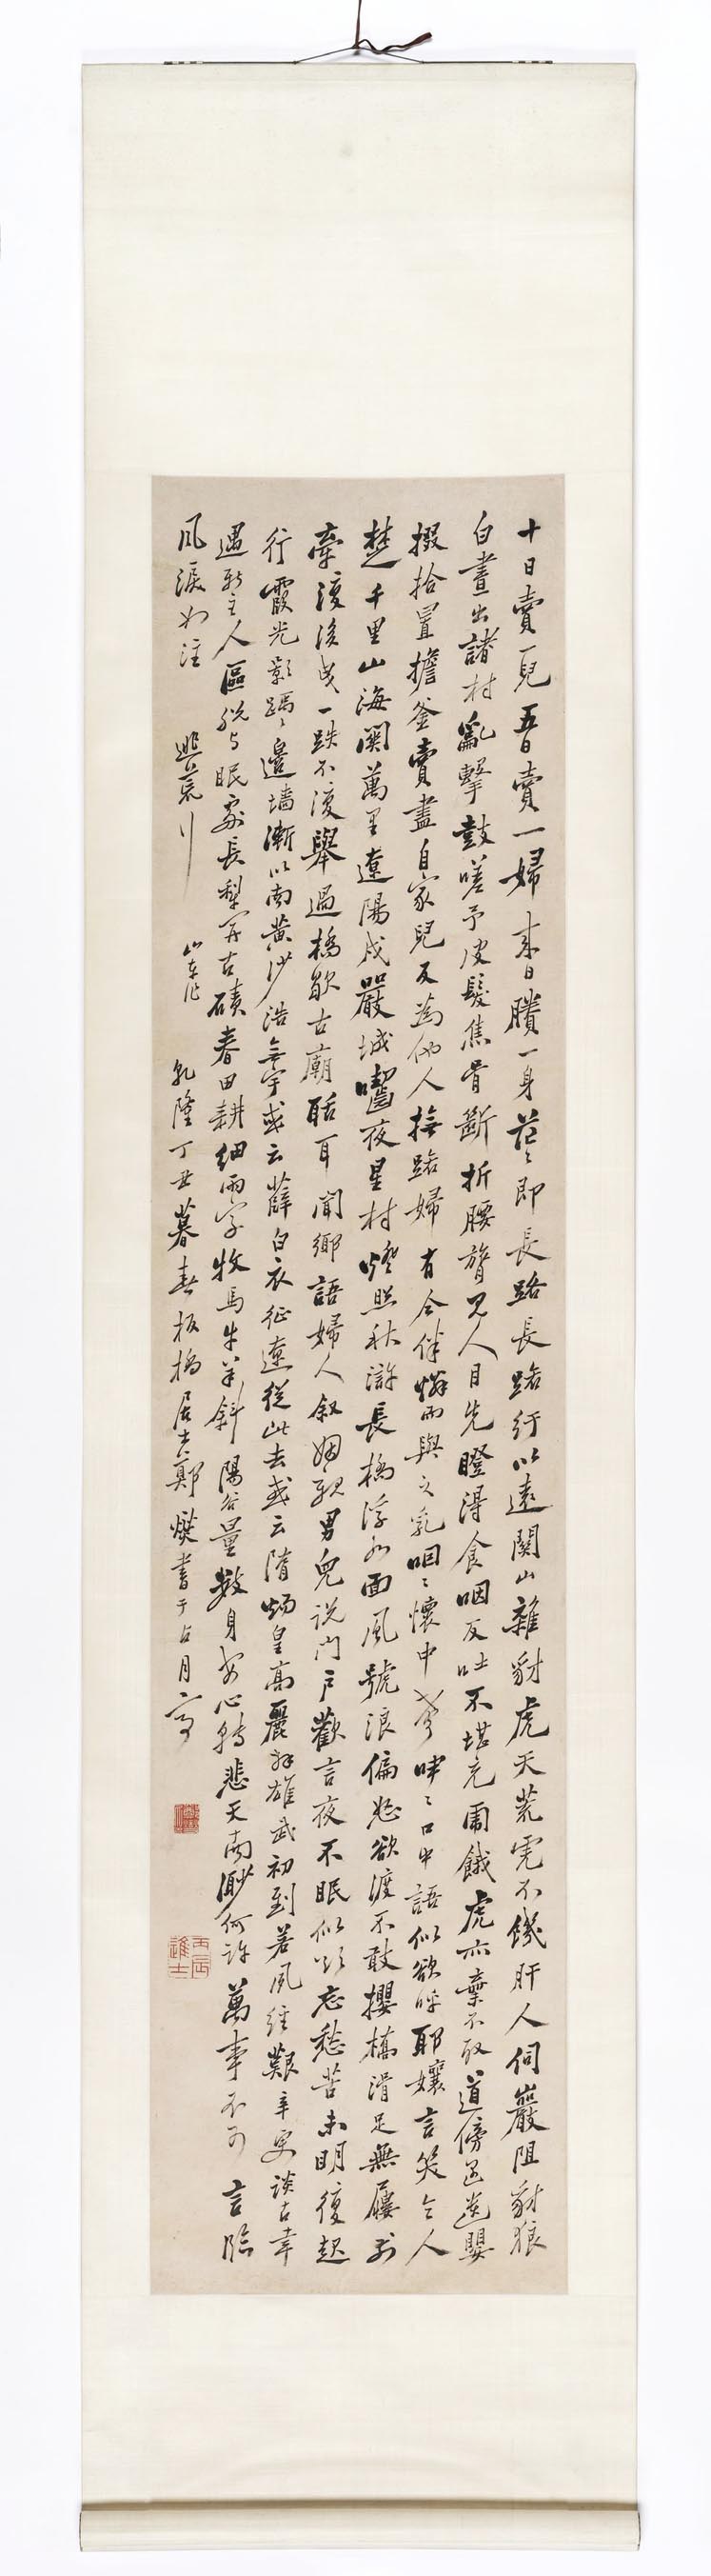 十日賣一兒五日賣一婦來日賸一身茫〻即長路長路行以遠關山雜豺虎天荒虎不饑肝人伺巖阻豺狼
白晝出諸村亂擊鼓嗟予皮髮焦骨斷折腰膂見人目先瞪得食咽反吐不堪充虎餓虎亦棄不取道傍遇遺嬰
掇拾置擔釜賣盡自家兒反為他人撫路婦有同伴憐而與之乳咽〻懷中聲咿〻口中語似欲呼耶孃言笑令人
楚千里山海關萬里遼陽戍嚴城嚙夜星村燈照秋滸長橋浮水面風號浪偏怒欲渡不敢攖橋滑足無屨前
牽復後曳一跌不復舉過橋歇古廟聒耳聞鄉語婦人敘姻親男兒說門戶歡言夜不眠似欲忘愁苦未明復起
行霞光影踽〻邊墻漸以南黃沙浩無宇或云薛白衣征遼從此去或云隋煬皇高麗拜雄武初到若夙經艱辛更談古幸
遇新主人區脫與眠處長犁開古磧春田耕細雨字牧馬牛羊斜陽谷量數身安心轉悲天南渺何許萬事不可言臨
風淚如注 逃荒行 山東作 乾隆丁丑暮春板橋居士鄭燮書于
丙辰進士